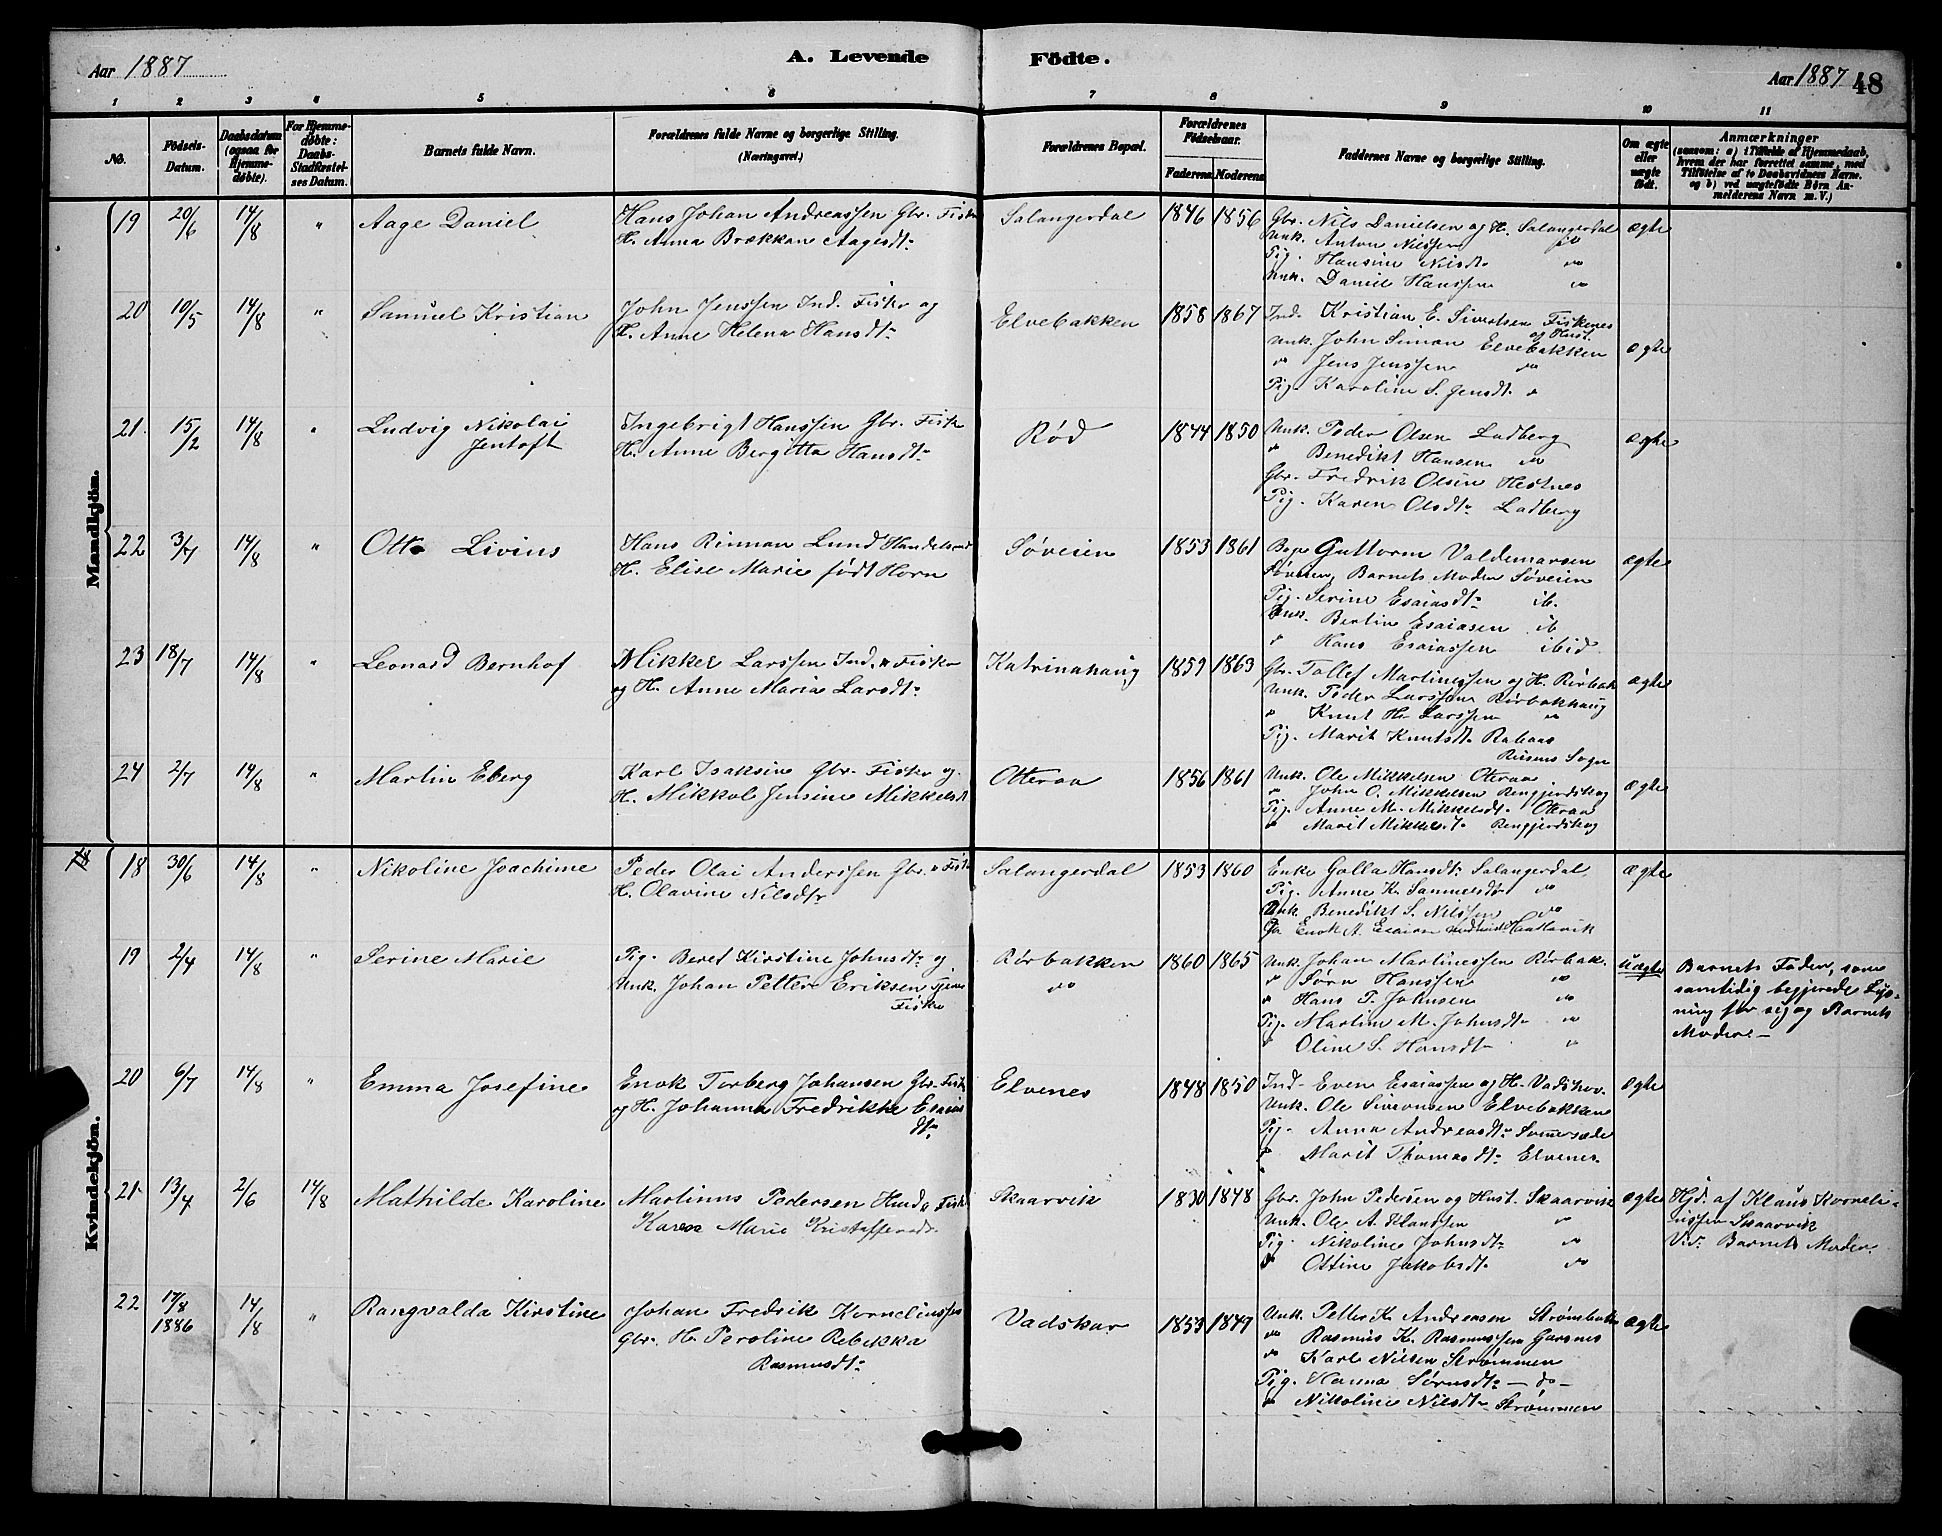 Aar 1887
A. Levende Födte.
Aar 1887 48
1 2 3 4 5 6 7 8 9 10 11
No.
Fødsels-Datum.
Daabsdatum (ogsaa for Hjemmedøbte).
For Hjemmedøbte: Daabs-Stadfæstelses Datum.
Barnets fulde Navn.
Forældrenes fulde Navne og borgerlige Stilling. (Næringsvei.)
Forældrenes Bopæl.
Forældrenes Fødselsaar.
Faderens Moderens
Faddernes Navne og borgerlige Stilling.
Om ægte eller uægte født.
Anmærkninger
(saasom: a) i Tilfælde af Hjemmedaab, hvem der har forrettet samme, med Tilføielse af to Daabsvidners Navne. og b) ved uægtefødte Børn Anmelderens Navn m. V.)
Mandkjön.
19 20/6 14/8 " Aage Daniel
Hans Johan Andreassen Gbr. Fisk
H. Anna Brækkan Aagesdtr
Salangerdal 1846 1856
Gbr. Nils Danielsen og H. Salangerdal
Unk. Anton Nilssen do
Pig. Hansine Nilsdtr do
Unk. Daniel Hanssen do
ægte
20 10/5 14/8 " Samuel Kristian
John Jenssen Ind. Fisker og
H. Anne Helena Hansdtr
Elvebakken 1858 1867
Ind. Kristian E. Sivertsen Fiskenes
og Hust.
Unk. John Simon Elvebakken
" Jens Jenssen do
Pig. Karoline S. Jensdtr "
ægte
21. 15/2 14/8 " Ludvig Nikolai
Jentoft
Ingebrigt Hanssen Gbr. Fisk
H. Anne Bergitta Hansdtr
Rød 1844 1850
Unk. Peder Olsen Ladberg
" Benedikt Hansen do
Gbr. Fredrik Olsen Hestnes
Pig. Karen Olsdtr Ladberg
ægte
22 3/7 14/8 " Otto Livius
Hans Rinnan Lund Handelsmd
H. Elise Marie født Horn
Søveien 1853 1861
Guttorm Valdemarsen
Søveien, Barnets Moder Søveien
Pig. Serine Esaiasdtr ib.
Unk. Bertin Esaiasen ib
" Hans Esaiassen ibid.
ægte
23 18/7 14/8 " Leonard Bernhof
Mikkel Larssen Ind. " Fisker
og H. Anne Maria Larsdtr
Katrinahaug 1859 1863
Gbr. Tollef Martinessen og H. Rørbak
Unk. Peder Larssen Rørbakhaug
" Knut H. Larssen "
Pig. Marit Knutsdtr Rabaas
Sogn
ægte
24 2/7 14/8 " Martin Eberg
Karl Isaksen Gbr. Fisker og
H. Mikkol Jensine Mikkelsdt
Otteraa 1856 1861
Unk. Ole Mikkelsen Otteraa
" John O. Mikkelsen Rengjerdskog
Pig. Anne M. Mikkelsdtr Otteraa
" Marit Mikkelsdt Rengjerdskog
ægte
Kvindekjön.
18 30/6 14/8 " Nikoline Joachime
Peder Olai Anderssen Gbr. " Fisk
H. Olavine Nilsdtr
Salangerdal 1853 1860
Enke Golla Hansdtr Salangerdal
Pig. Anne K. Samuelsdtr do
Unk. Benedikt S. Nilssen do
Enok A. Esaisen
ægte
19 2/4 14/8 " Serine Marie
Pig. Beret Kirstine Johnsdtr og
Unk. Johan Petter Eriksen Tjener
Fisker
Rørbakken 1860 1865
do
Unk. Johan Martinessen Rørbak.
" Sørn Hanssen do
" Hans P. Johnsen do
Pig. Martine M. Johnsdtr "
" Oline S. Hansdtr "
Uægte
Barnets Fader, som
samtidig begjerede Lys-
ning for sig og Barnets
Moder. —
20 6/7 14/8 " Emma Josefine
Enok Torberg Johansen Gbr. Fisk
og H. Johanna Fredrikke Esaias
dtr
Elvenes 1848 1850
Ind. Even Esaiassen og H. Vadskov.
Unk. Ole Siversen Elvebakken
Pig. Anna Andreasdtr Sommersæde
" Marit Thomasdtr Elvenes
ægte
21. 13/4 2/6 14/8 Mathilde Karoline
Martinus Pedersen Husm Fisk
Karen Marie Kristoffersdr.
Skaarvik 1830 1848
Gbr. John Pedersen og Hust. Skaarvik
Unk. Ole A. Klaussen "
Pig. Nikoline Johnsdtr do
" Ottine Jakobsdtr do
ægte
Hjd. af Klaus Korneli-
ussen Skaarvik
Vid. Barnets Moder.
22 17/8 1886 14/8 " Rangvalda Kirstine
Johan Fredrik Korneliussen
Gbr. H. Peroline Rebekka
Rasmusdtr
Vadskar 1853 1849
Unk. Petter K. Andreasen Strømbakk
" Rasmus K. Rasmussen Garsnes
" Karl Nilsen Strømmen
Pig. Hanna Sørnsdtr — do —
" Nikoline Nilsdtr Strømmen
ægte